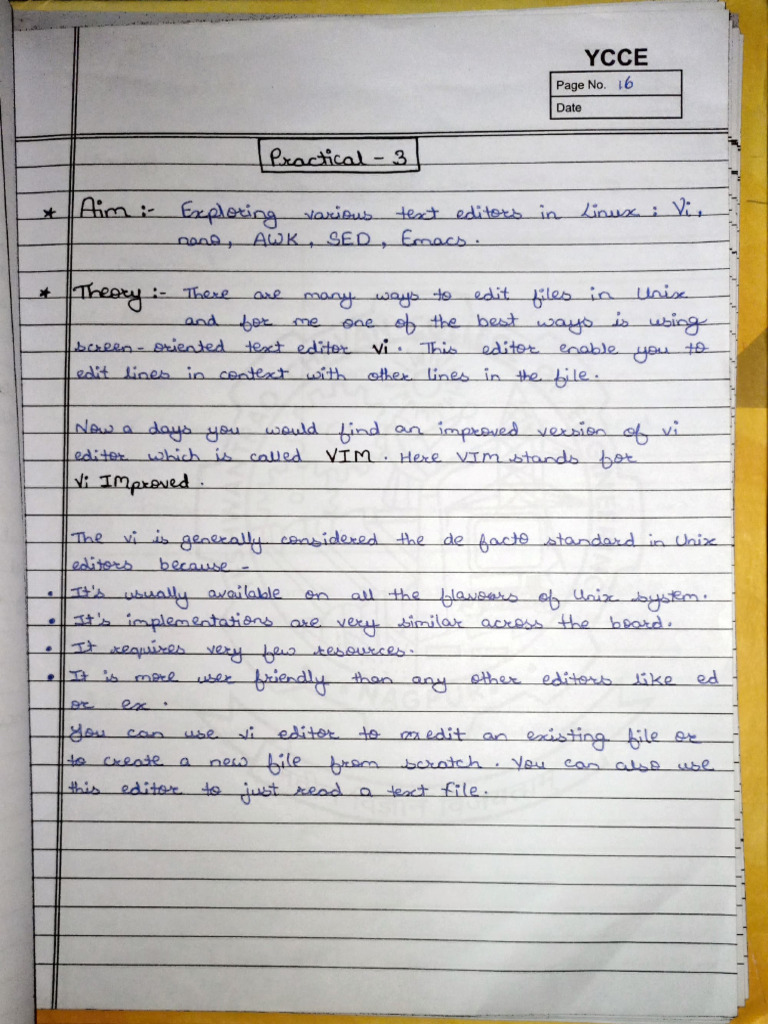 YCCE
Page No. 16
Date
Practical - 3
* Aim :- Exploring various text editors in Linux : Vi,
nano, AWK, SED, Emacs.
* Theory :- There are many ways to edit files in Unix
and for me one of the best ways is using
screen-oriented text editor vi. This editor enable you to
edit lines in context with other lines in the file.
Now a days you would find an improved version of vi
editor which is called VIM. Here VIM stands for
Vi IMproved.
The vi is generally considered the de facto standard in Unix
editors because -
• It's usually available on all the flavours of Unix system.
• It's implementations are very similar across the board.
• It requires very few resources.
• It is more user friendly than any other editors like ed
or ex.
You can use vi editor to edit an existing file or
to create a new file from scratch. You can also use
this editor to just read a text file.
NAGPUR